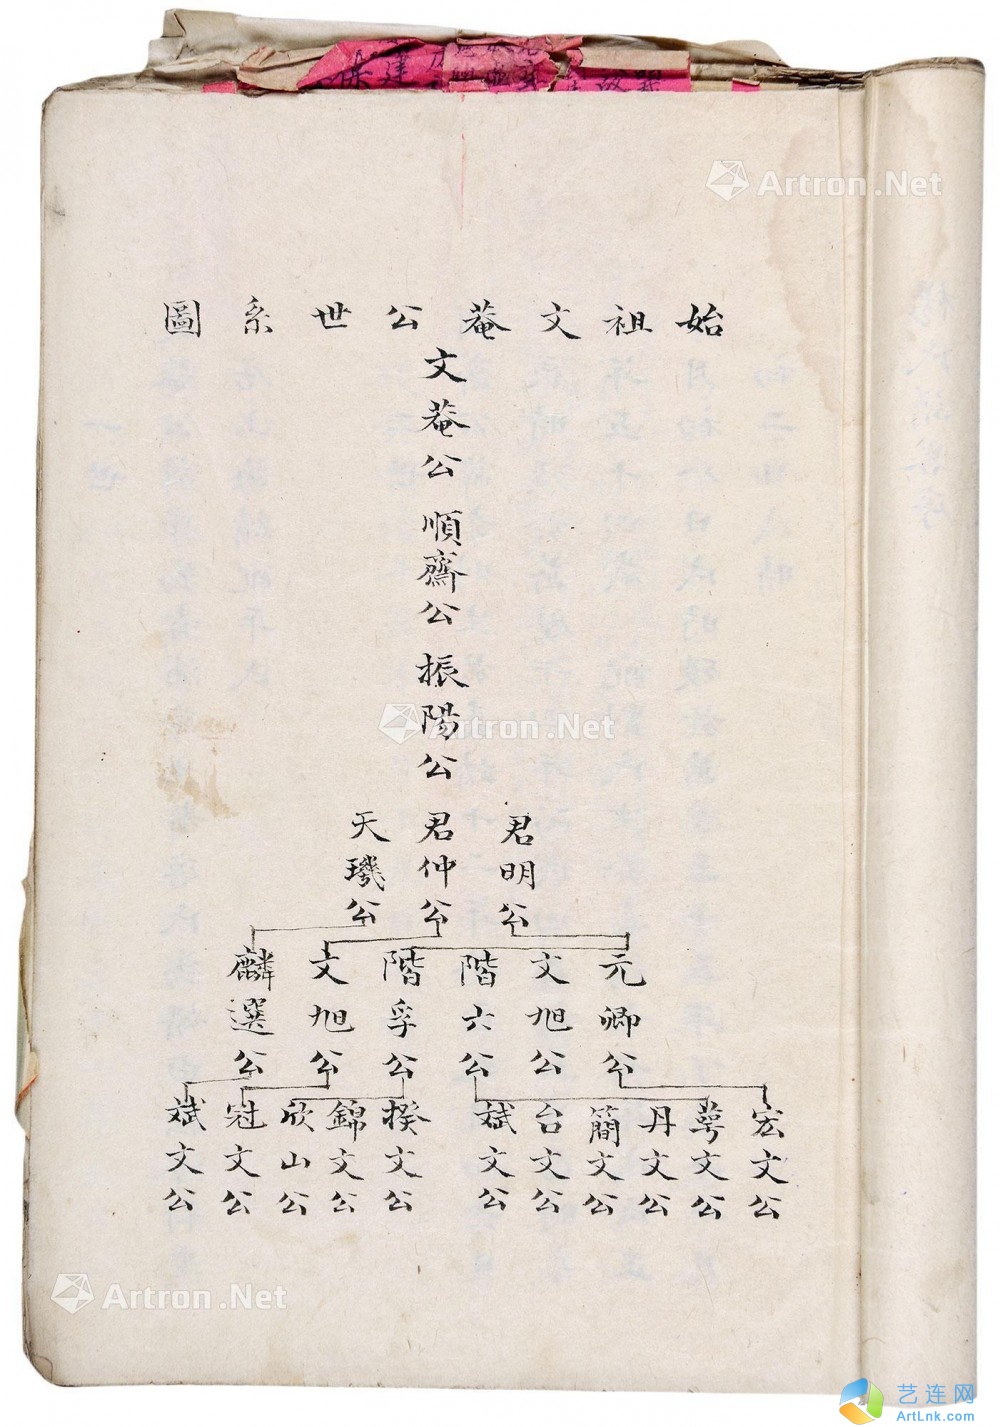 始祖文菴公世系圖
文菴公
順齋公
振陽公
君明公
君仲公
天璣公
元卿公
文旭公
階六公
階孚公
文旭公
麟選公
宏文公
萼文公
丹文公
簡文公
台文公
斌文公
揆文公
錦文公
欣山公
冠文公
斌文公
Artron.Net
Artron.Net
Artron.Net
艺连网
ArtLnk.com